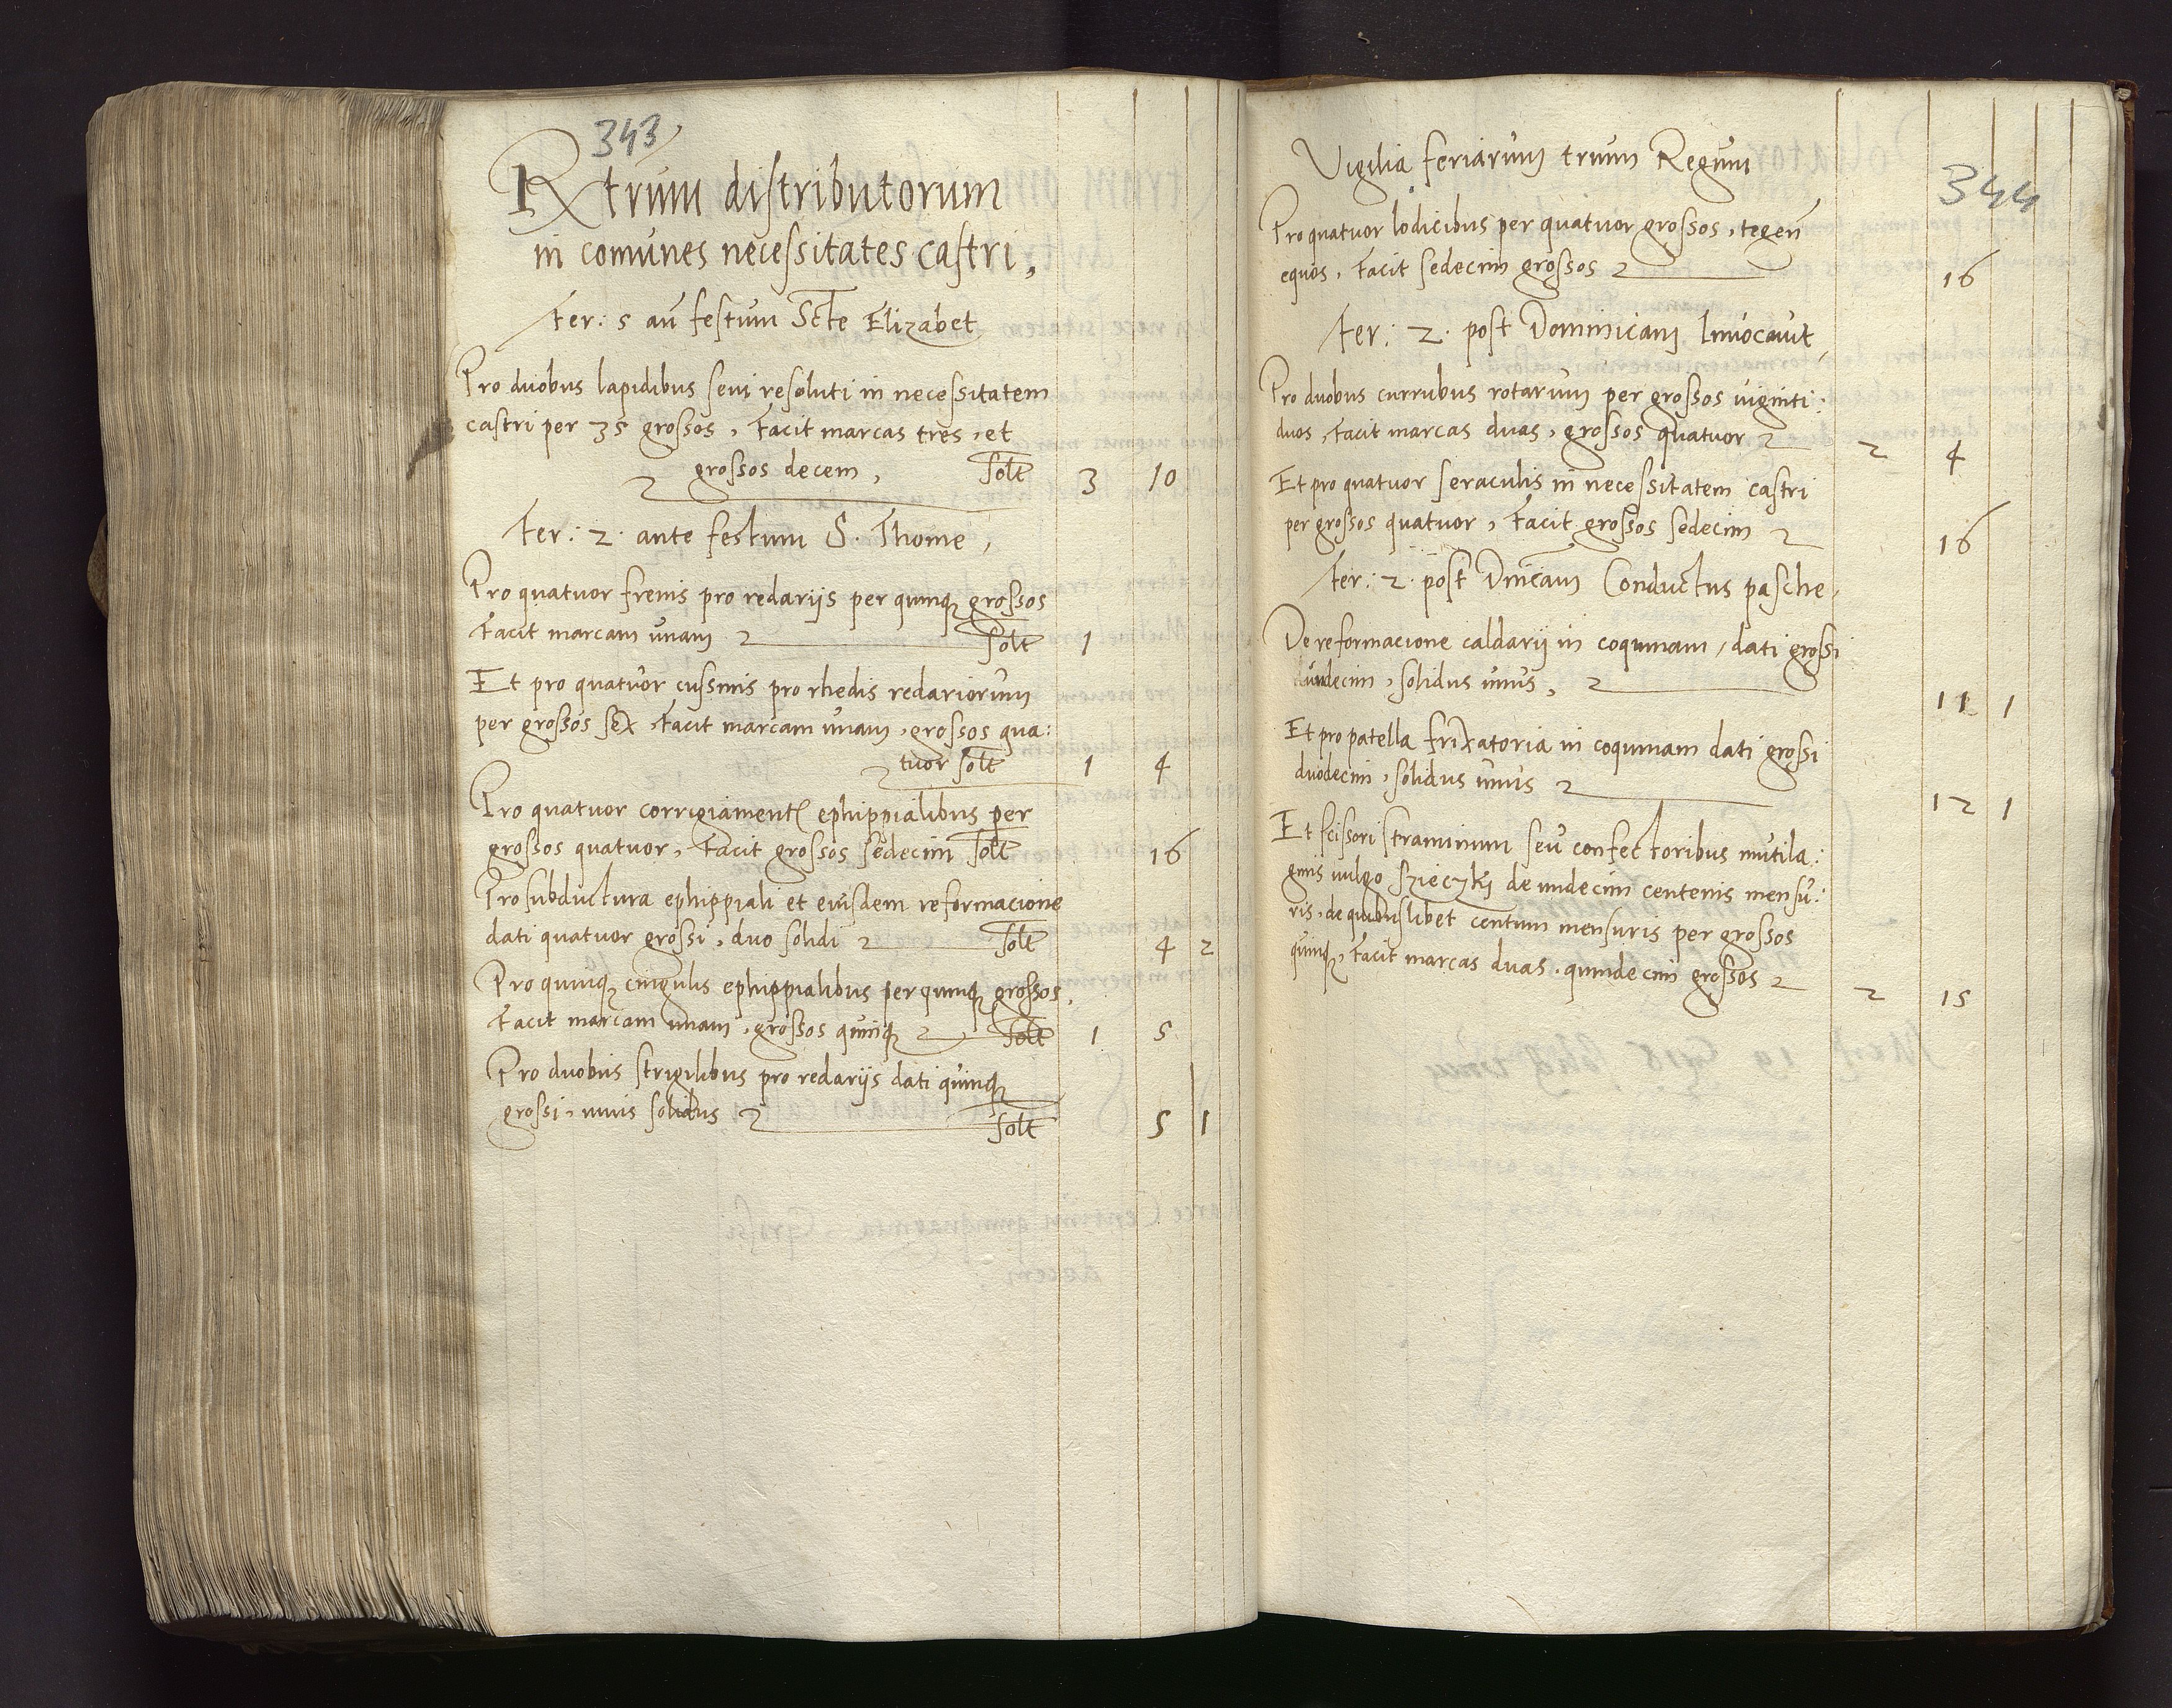 343
Rtrum distributorum
in comunes necessitates castri,
Fer: 5 an festum Scte Elizabet
Pro duobus lapidibus sevi resoluti in necessitatem
castri per 35 grossos, Facit marcas tres, et
grossos decem, solt 3 10
Fer: 2. ante festum S. Thome,
Pro quatuor frenis pro redarijs per quinq grossos
Facit marcam unam solt 1
Et pro quatuor cussinis pro rhedis redariorum
per grossos sex, Facit marcam unam, grossos qua:
tuor solt 1 4
Pro quatuor corrigiament ephippialibus per
grossos quatuor, Facit grossos sedecim solt 16
Pro subductura ephippiali et eiusdem reformacione
dati quatuor grossi, duo solidi solt 4 2
Pro quinq cingulis ephippialibus per quinq grossos,
Facit marcam unam, grossos quinq solt 1 5
Pro duobus strigilibus pro redarijs dati quinq
grossi, unus solidus solt 5 1
344
Vigilia feriarum trium Regum
Pro quatuor lodicibus per quatuor grossos, tegen
equos, Facit sedecim grossos 16
Fer: 2. post Dominicam Invocavit,
Pro duobus curribus rotarum per grossos viginti:
duos, Facit marcas duas, grossos quatuor 2 4
Et pro quatuor seraculis in necessitatem castri
per grossos quatuor, Facit grossos sedecim 16
Fer: 2. post Dnicam Conductus pasche,
De reformacione caldarij in coquinam, dati grossi
undecim, solidus unus, 11 1
Et pro patella frixatoria in coquinam dati grossi
duodecim, solidus unus 12 1
Et scissori straminum seu confectoribus mutila:
ginis vulgo szieczky de undecim centenis mensu:
ris, de quibuslibet centum mensuris per grossos
quinq, Facit marcas duas, quindecim grossos 2 15